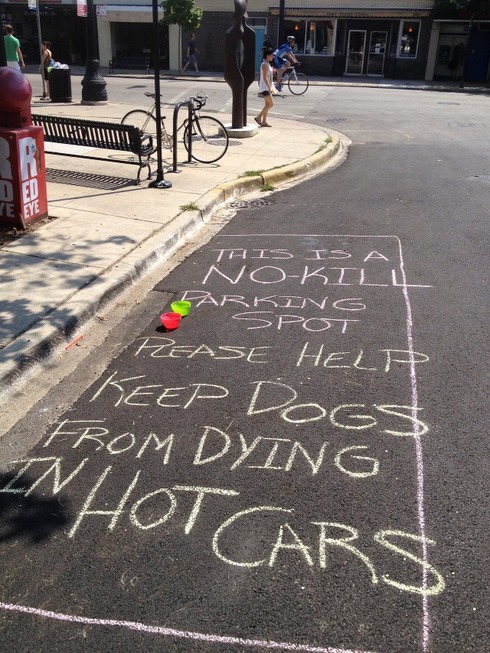 THIS IS A
NO-KILL
PARKING
SPOT
PLEASE HELP
KEEP DOGS
FROM DYING
IN HOT CARS
R
RED
EYE